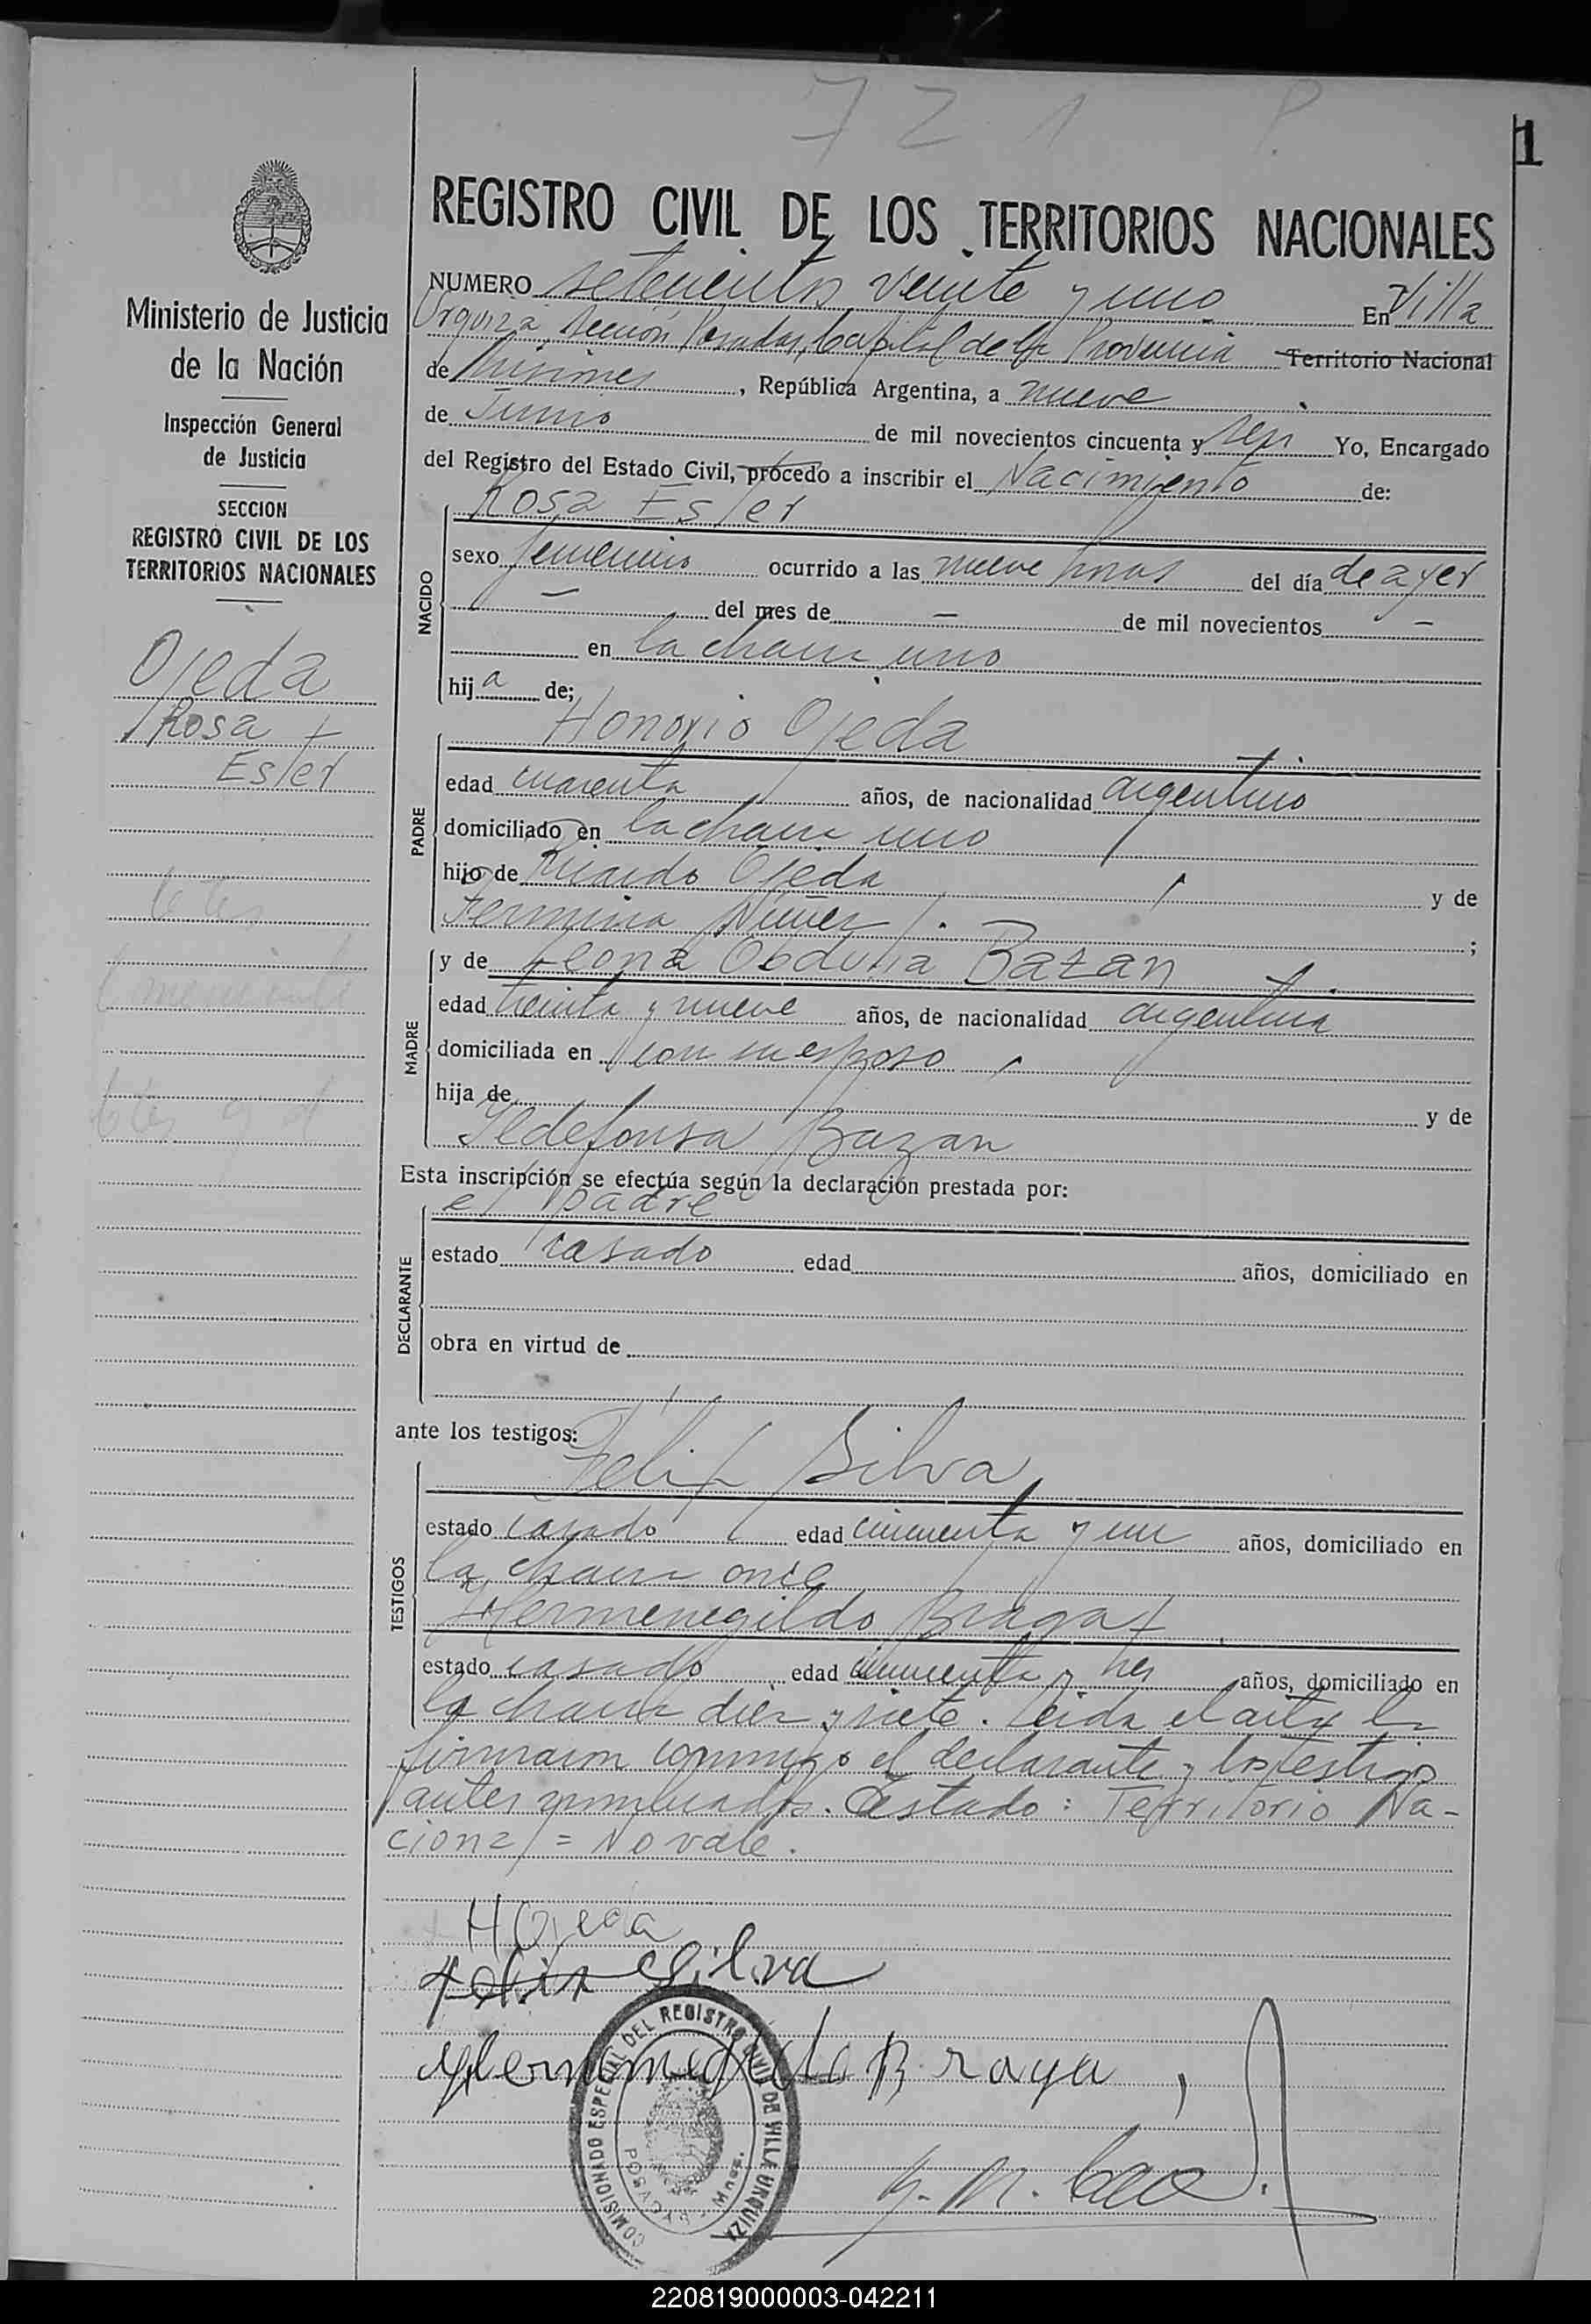 7 2 1 P.
1
REGISTRO CIVIL DE LOS TERRITORIOS NACIONALES
Ministerio de Justicia
de la Nación
Inspección General
de Justicia
SECCION
REGISTRO CIVIL DE LOS
TERRITORIOS NACIONALES
Ojeda
Rosa
Ester
NUMERO setecientos veinte y uno En Villa
Urquiza, Sección Posadas, Capital de la Provincia Territorio Nacional
de Misiones, República Argentina, a nueve
de Junio de mil novecientos cincuenta y seis Yo, Encargado
del Registro del Estado Civil, procedo a inscribir el Nacimiento de:
NACIDO
Rosa Ester
sexo femenino ocurrido a las nueve horas del día de ayer
— del mes de — de mil novecientos —
en la chacra uno
hija de;
PADRE
Honorio Ojeda
edad cuarenta años, de nacionalidad argentino
domiciliado en la chacra uno
hijo de Ricardo Ojeda y de
Fermina Núñez;
MADRE
y de Leona Obdulia Bazan
edad treinta y nueve años, de nacionalidad argentina
domiciliada en con su esposo
hija de y de
Ildefonsa Bazan
Esta inscripción se efectúa según la declaración prestada por:
DECLARANTE
el padre
estado casado edad años, domiciliado en
obra en virtud de
ante los testigos:
TESTIGOS
Felix Silva
estado casado edad cincuenta y un años, domiciliado en
la chacra once
Hermenegildo Braga
estado casado edad cincuenta y tres años, domiciliado en
la chacra diez y siete. Leida el acta la
firmaron conmigo el declarante y los testigos
antes nombrados. Testado: Territorio Na-
cional = No vale.
H Ojeda
Felix Silva
Hermenegildo Braga
COMISIONADO ESPECIAL DEL REGISTRO CIVIL DE VILLA URQUIZA
POSADAS - Mnes.
220819000003-042211